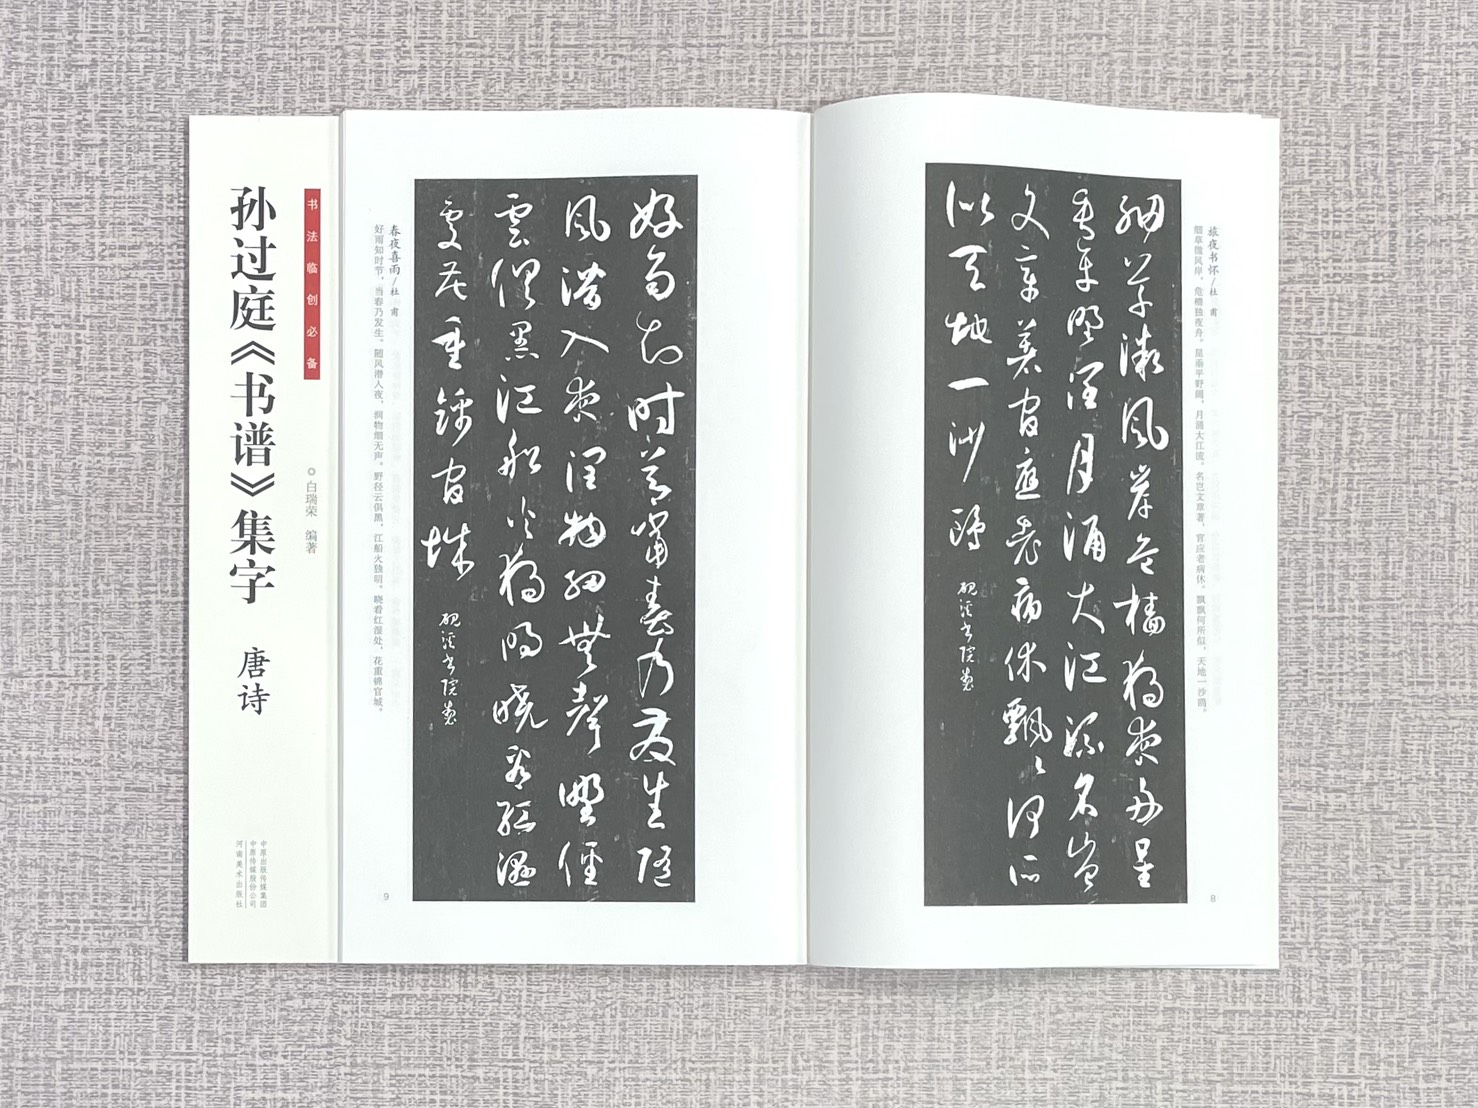 书法临创必备
孙过庭《书谱》集字 唐诗
◎白瑞荣 编著
中原出版传媒集团
中原传媒股份公司
河南美术出版社
旅夜书怀/杜 甫
细草微风岸，危樯独夜舟。星垂平野阔，月涌大江流。名岂文章著，官应老病休。飘飘何所似，天地一沙鸥。
细草微风岸危樯独夜舟星
垂平野阔月涌大江流名岂
文章著官应老病休飘飘何所
似天地一沙鸥
8
春夜喜雨/杜 甫
好雨知时节，当春乃发生。随风潜入夜，润物细无声。野径云俱黑，江船火独明。晓看红湿处，花重锦官城。
好雨知时节当春乃发生随
风潜入夜润物细無聲野径
雲俱黑江船火独明晓看红湿
处花重锦官城
9